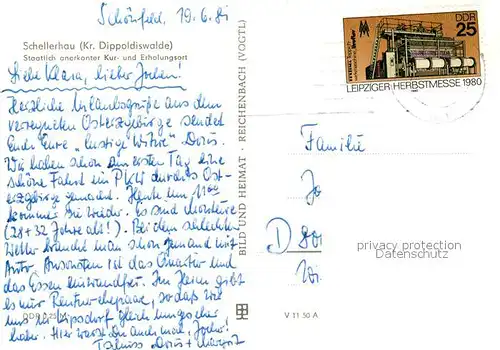 Schönfeld, 19.6.81
Schellerhau (Kr. Dippoldiswalde)
Staatlich anerkannter Kur- und Erholungsort
Liebe Klara, lieber Jochen!
Herzliche Urlaubsgrüße aus dem
verregneten Osterzgebirge sendet
Euch Eure "lustige Witwe" Doris.
Wir haben schon am ersten Tag eine
schöne Fahrt im PKW durchs Ost-
erzgebirge gemacht. Heute um 11.00
kommen sie wieder. Es sind
(28+32 Jahre alt!). Bei dem schlechten
Wetter braucht man schon jemand mit
Auto. Ansonsten ist das Quartier und
das Essen einwandfrei. Im Heim gibt
es nur Rentnerehepaare, so daß wir
uns in Kipsdorf gleich umgesehen
haben. Hier wärst Du auch
Tschüss Doris + Margot
BILD UND HEIMAT · REICHENBACH (VOGTL)
V 11 50 A
DDR
25
LEIPZIGER HERBSTMESSE 1980
Familie
Jo
D 801
privacy protection
Datenschutz